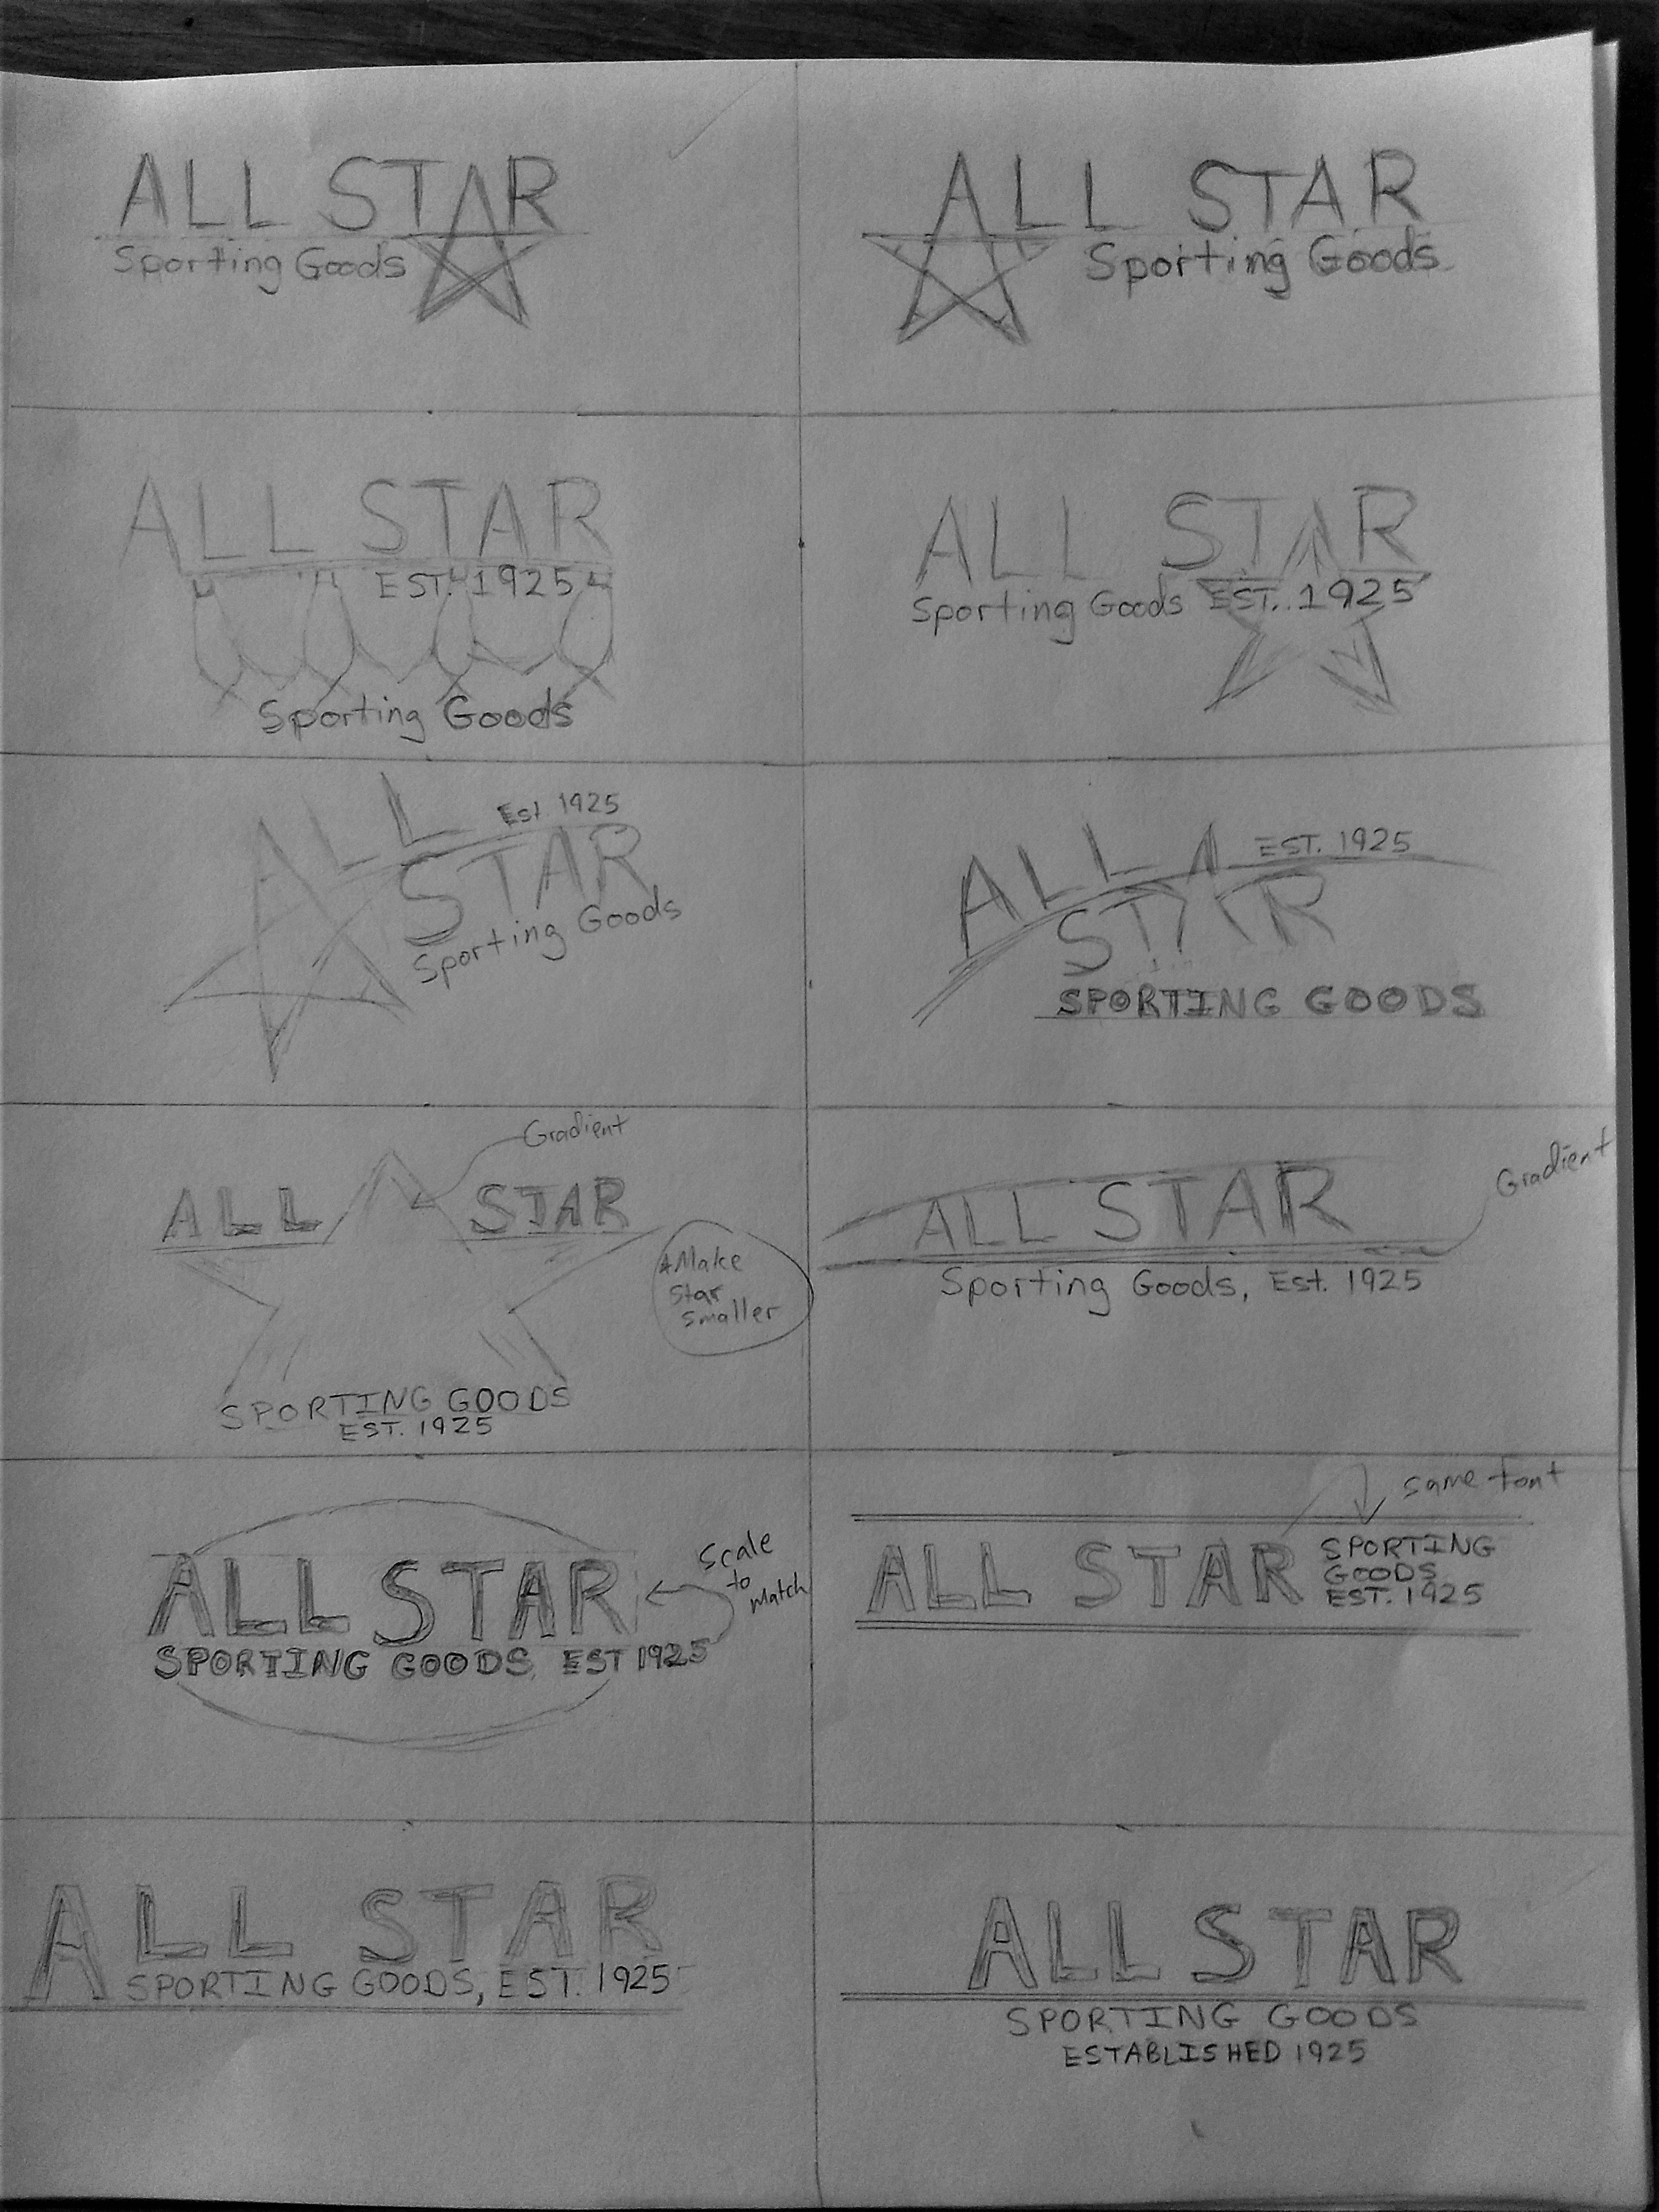 ALL STAR
Sporting Goods
ALL STAR
Sporting Goods
ALL STAR
EST. 1925
Sporting Goods
ALL STAR
Sporting Goods EST. 1925
ALL
Est. 1925
STAR
Sporting Goods
ALL
EST. 1925
STAR
SPORTING GOODS
Gradient
ALL STAR
*Make
Star
Smaller
SPORTING GOODS
EST. 1925
Gradient
ALL STAR
Sporting Goods, Est. 1925
ALL STAR
SPORTING GOODS, EST 1925
Scale
to
Match
Same font
ALL STAR
SPORTING
GOODS
EST. 1925
ALL STAR
SPORTING GOODS, EST. 1925
ALL STAR
SPORTING GOODS
ESTABLISHED 1925